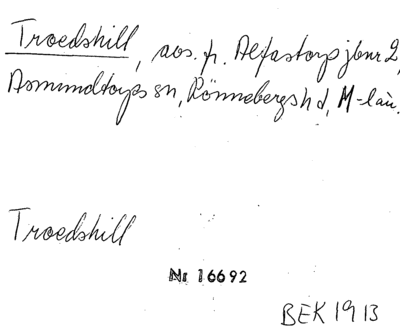 Troedshill, avs. fr. Alfastorp jbnr 2,
Asmundtorps sn, Rönnebergs hd, M-län.
Troedshill
Nr 16692
BEK 1913